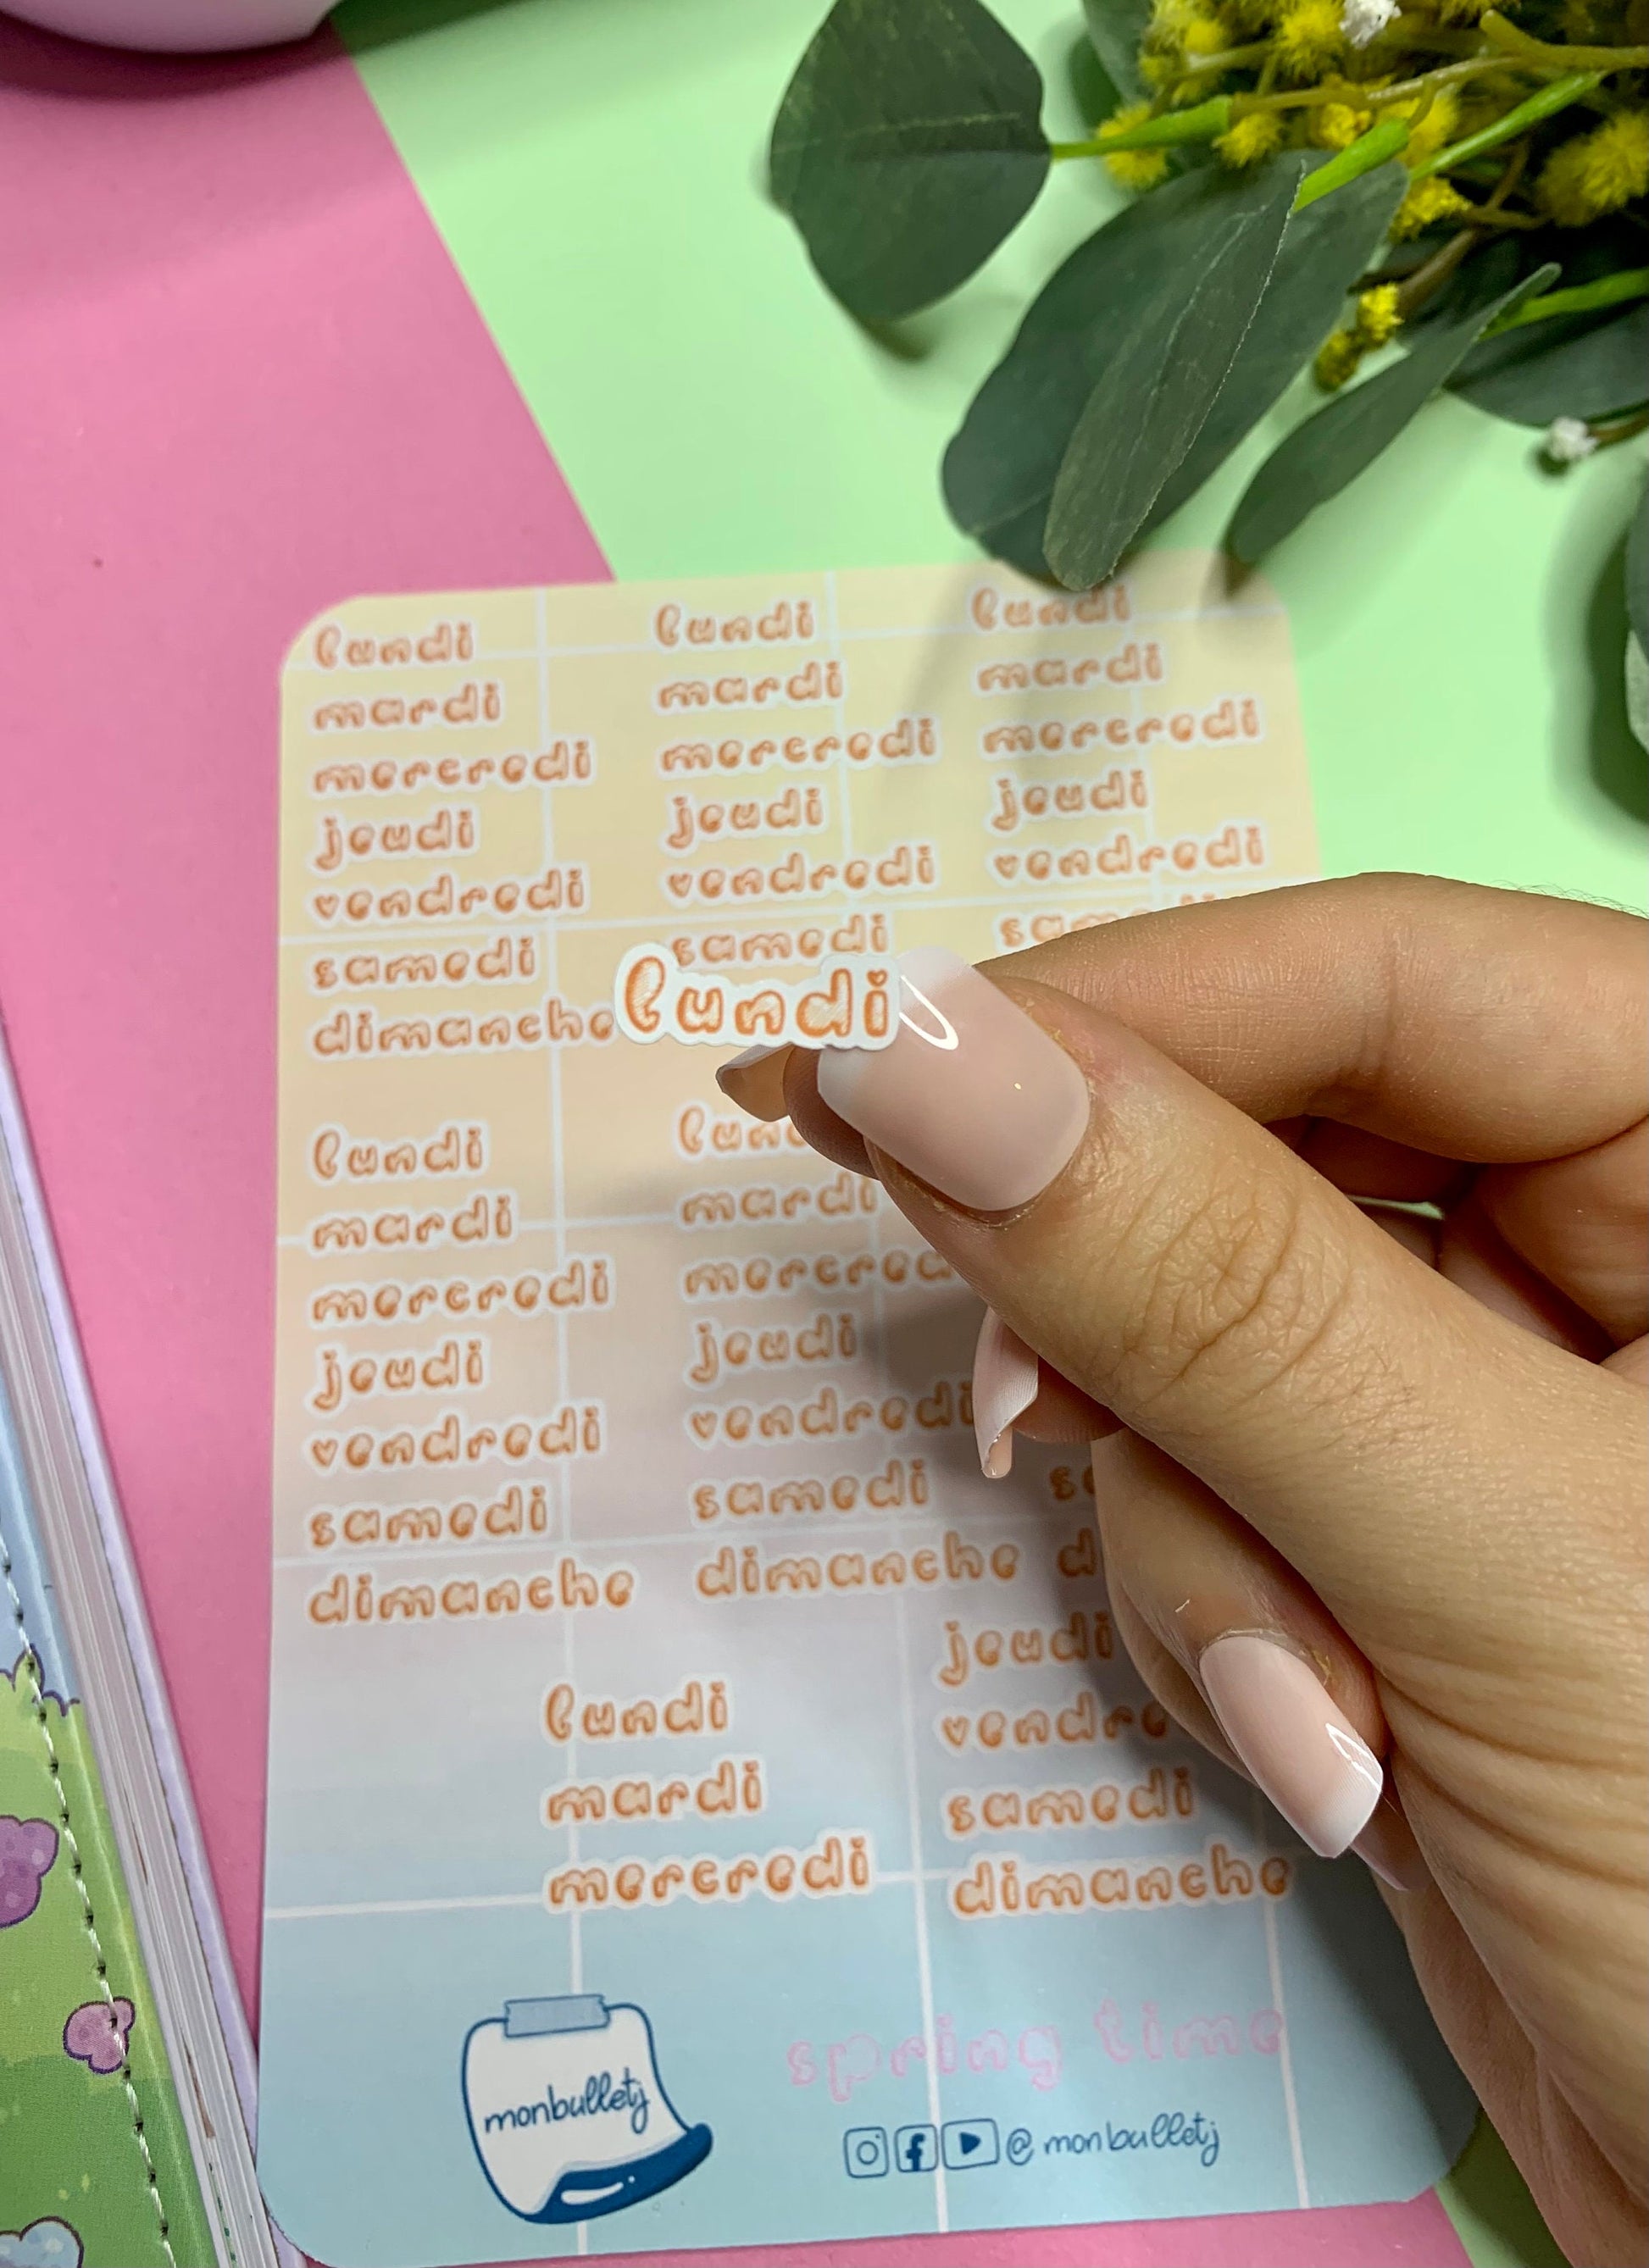 lundi lundi lundi
mardi mardi mardi
mercredi mercredi mercredi
jeudi jeudi jeudi
vendredi vendredi vendredi
samedi samedi
dimanche
lundi
lundi
mardi mardi
mercredi
jeudi jeudi
vendredi vendredi
samedi samedi
dimanche dimanche
lundi
mardi
mercredi
jeudi
samedi
dimanche
monbulletj
spring time
@monbulletj